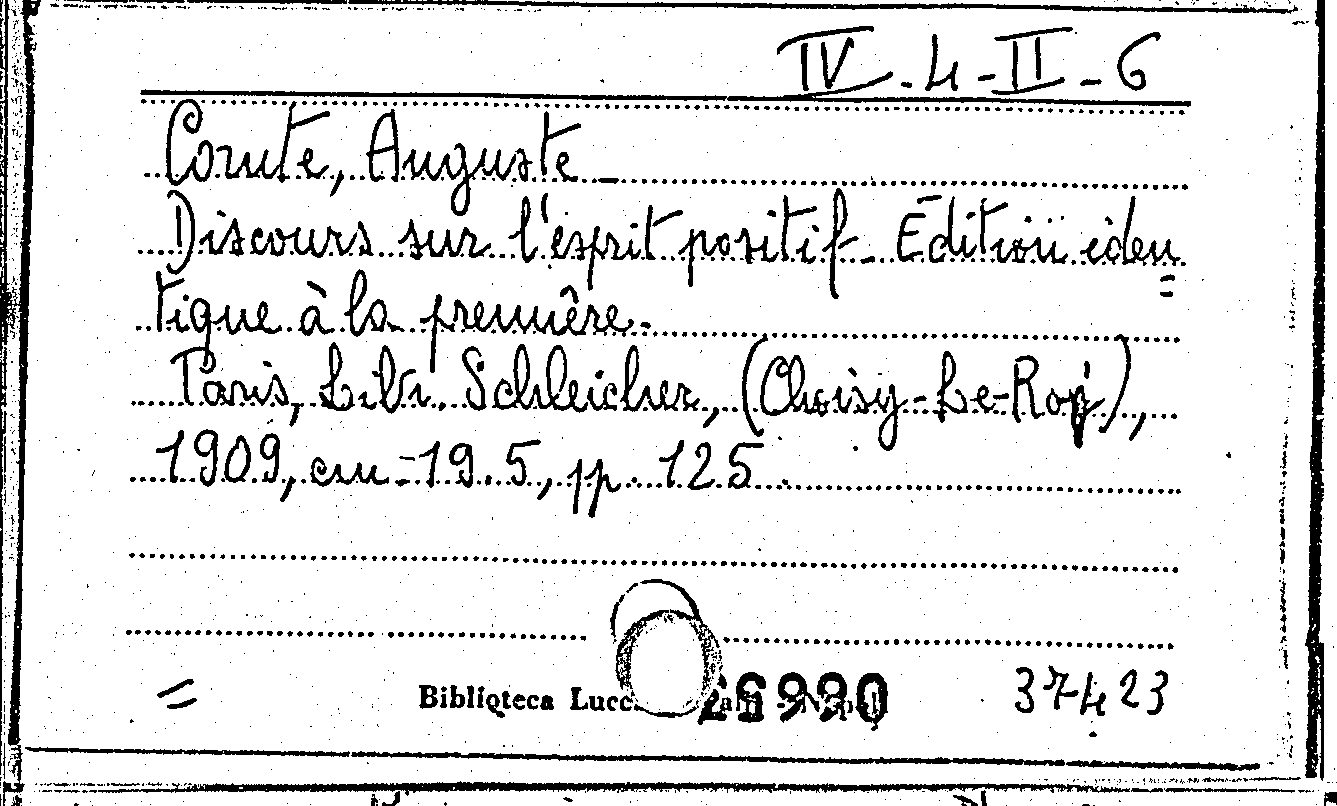 IV-4-II-6
Comte, Auguste_
Discours sur l'esprit positif_ Edition iden
tique à la première.
Paris, Libr. Schleicher, (Choisy-Le-Roy),
1909, cm-19.5, pp. 125
Biblioteca
37423